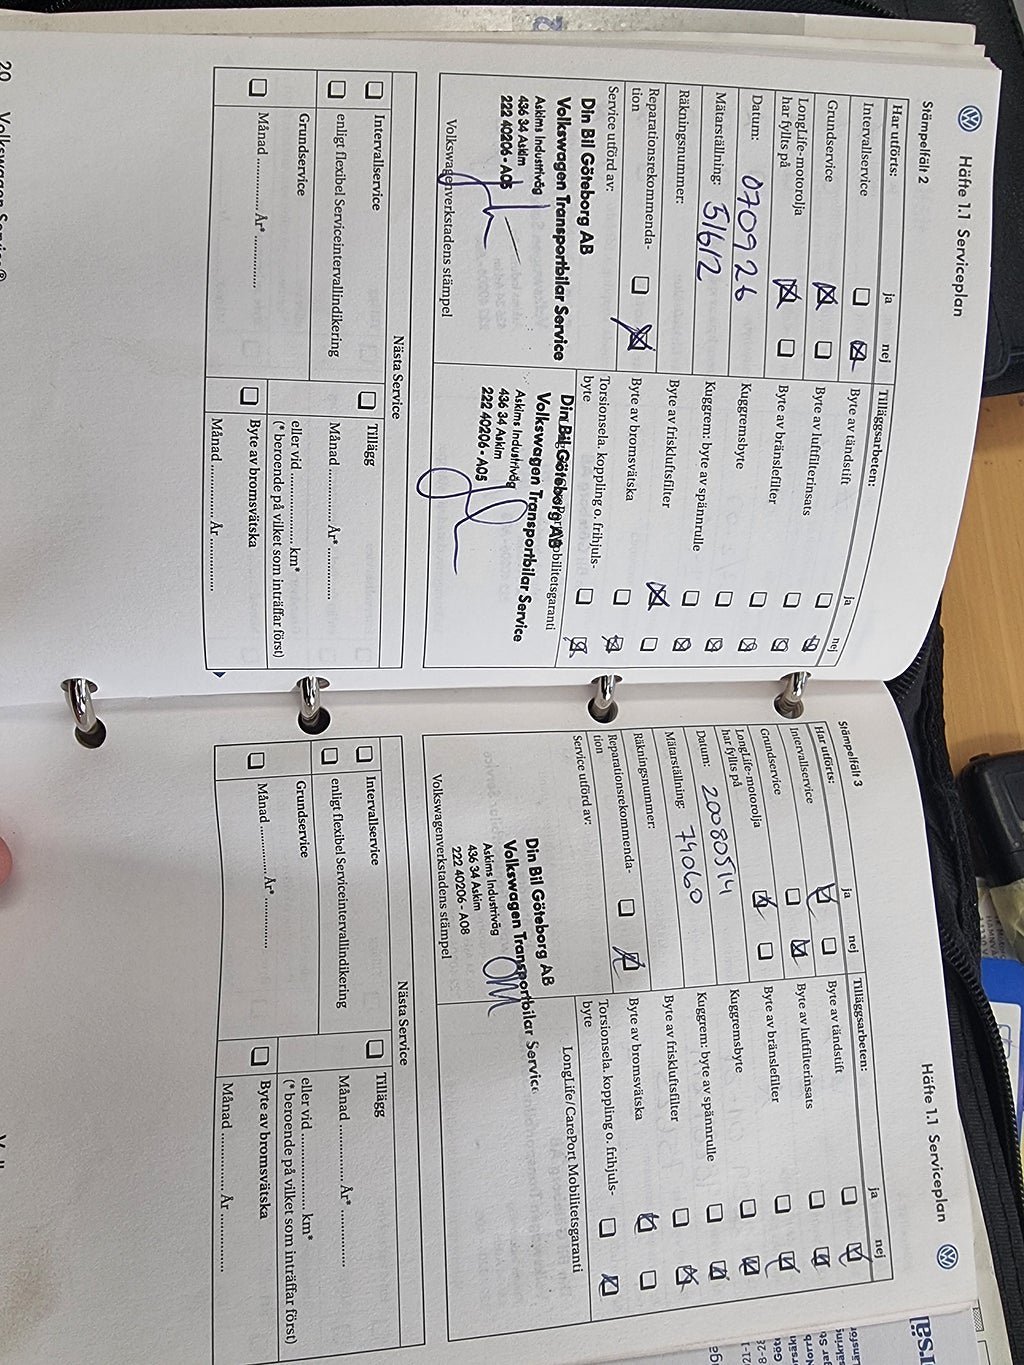 Häfte 1.1 Serviceplan
Stämpelfält 2
Har utförts:
ja
nej
Intervallservice
Grundservice
LongLife-motorolja
har fyllts på
Datum: 070926
Mätarställning: 51612
Räkningsnummer:
Reparationsrekommenda-
tion
Service utförd av:
Din Bil Göteborg AB
Volkswagen Transportbilar Service
Askims Industriväg
436 34 Askim
222 40206 - A05
Volkswagenverkstadens stämpel
Tilläggsarbeten:
ja
nej
Byte av tändstift
Byte av luftfilterinsats
Byte av bränslefilter
Kuggremsbyte
Kuggrem: byte av spännrulle
Byte av friskluftsfilter
Byte av bromsvätska
Torsionsela. koppling o. frihjuls-
byte
Mobilitetsgaranti
Din Bil Göteborg AB
Volkswagen Transportbilar Service
Askims Industriväg
436 34 Askim
222 40206 - A05
Nästa Service
Intervallservice
enligt flexibel Serviceintervallindikering
Grundservice
Månad ............ År* ............
Tillägg
Månad ............ År* ............
eller vid .................. km*
(* beroende på vilket som inträffar först)
Byte av bromsvätska
Månad ............ År ............
20
Häfte 1.1 Serviceplan
Stämpelfält 3
Har utförts:
ja
nej
Intervallservice
Grundservice
LongLife-motorolja
har fyllts på
Datum: 20080514
Mätarställning: 74060
Räkningsnummer:
Reparationsrekommenda-
tion
Service utförd av:
Din Bil Göteborg AB
Volkswagen Transportbilar Service
Askims Industriväg
436 34 Askim
222 40206 - A08
Volkswagenverkstadens stämpel
Tilläggsarbeten:
ja
nej
Byte av tändstift
Byte av luftfilterinsats
Byte av bränslefilter
Kuggremsbyte
Kuggrem: byte av spännrulle
Byte av friskluftsfilter
Byte av bromsvätska
Torsionsela. koppling o. frihjuls-
byte
LongLife/CarePort Mobilitetsgaranti
Nästa Service
Intervallservice
enligt flexibel Serviceintervallindikering
Grundservice
Månad ............ År* ............
Tillägg
Månad ............ År* ............
eller vid .................. km*
(* beroende på vilket som inträffar först)
Byte av bromsvätska
Månad ............ År ............